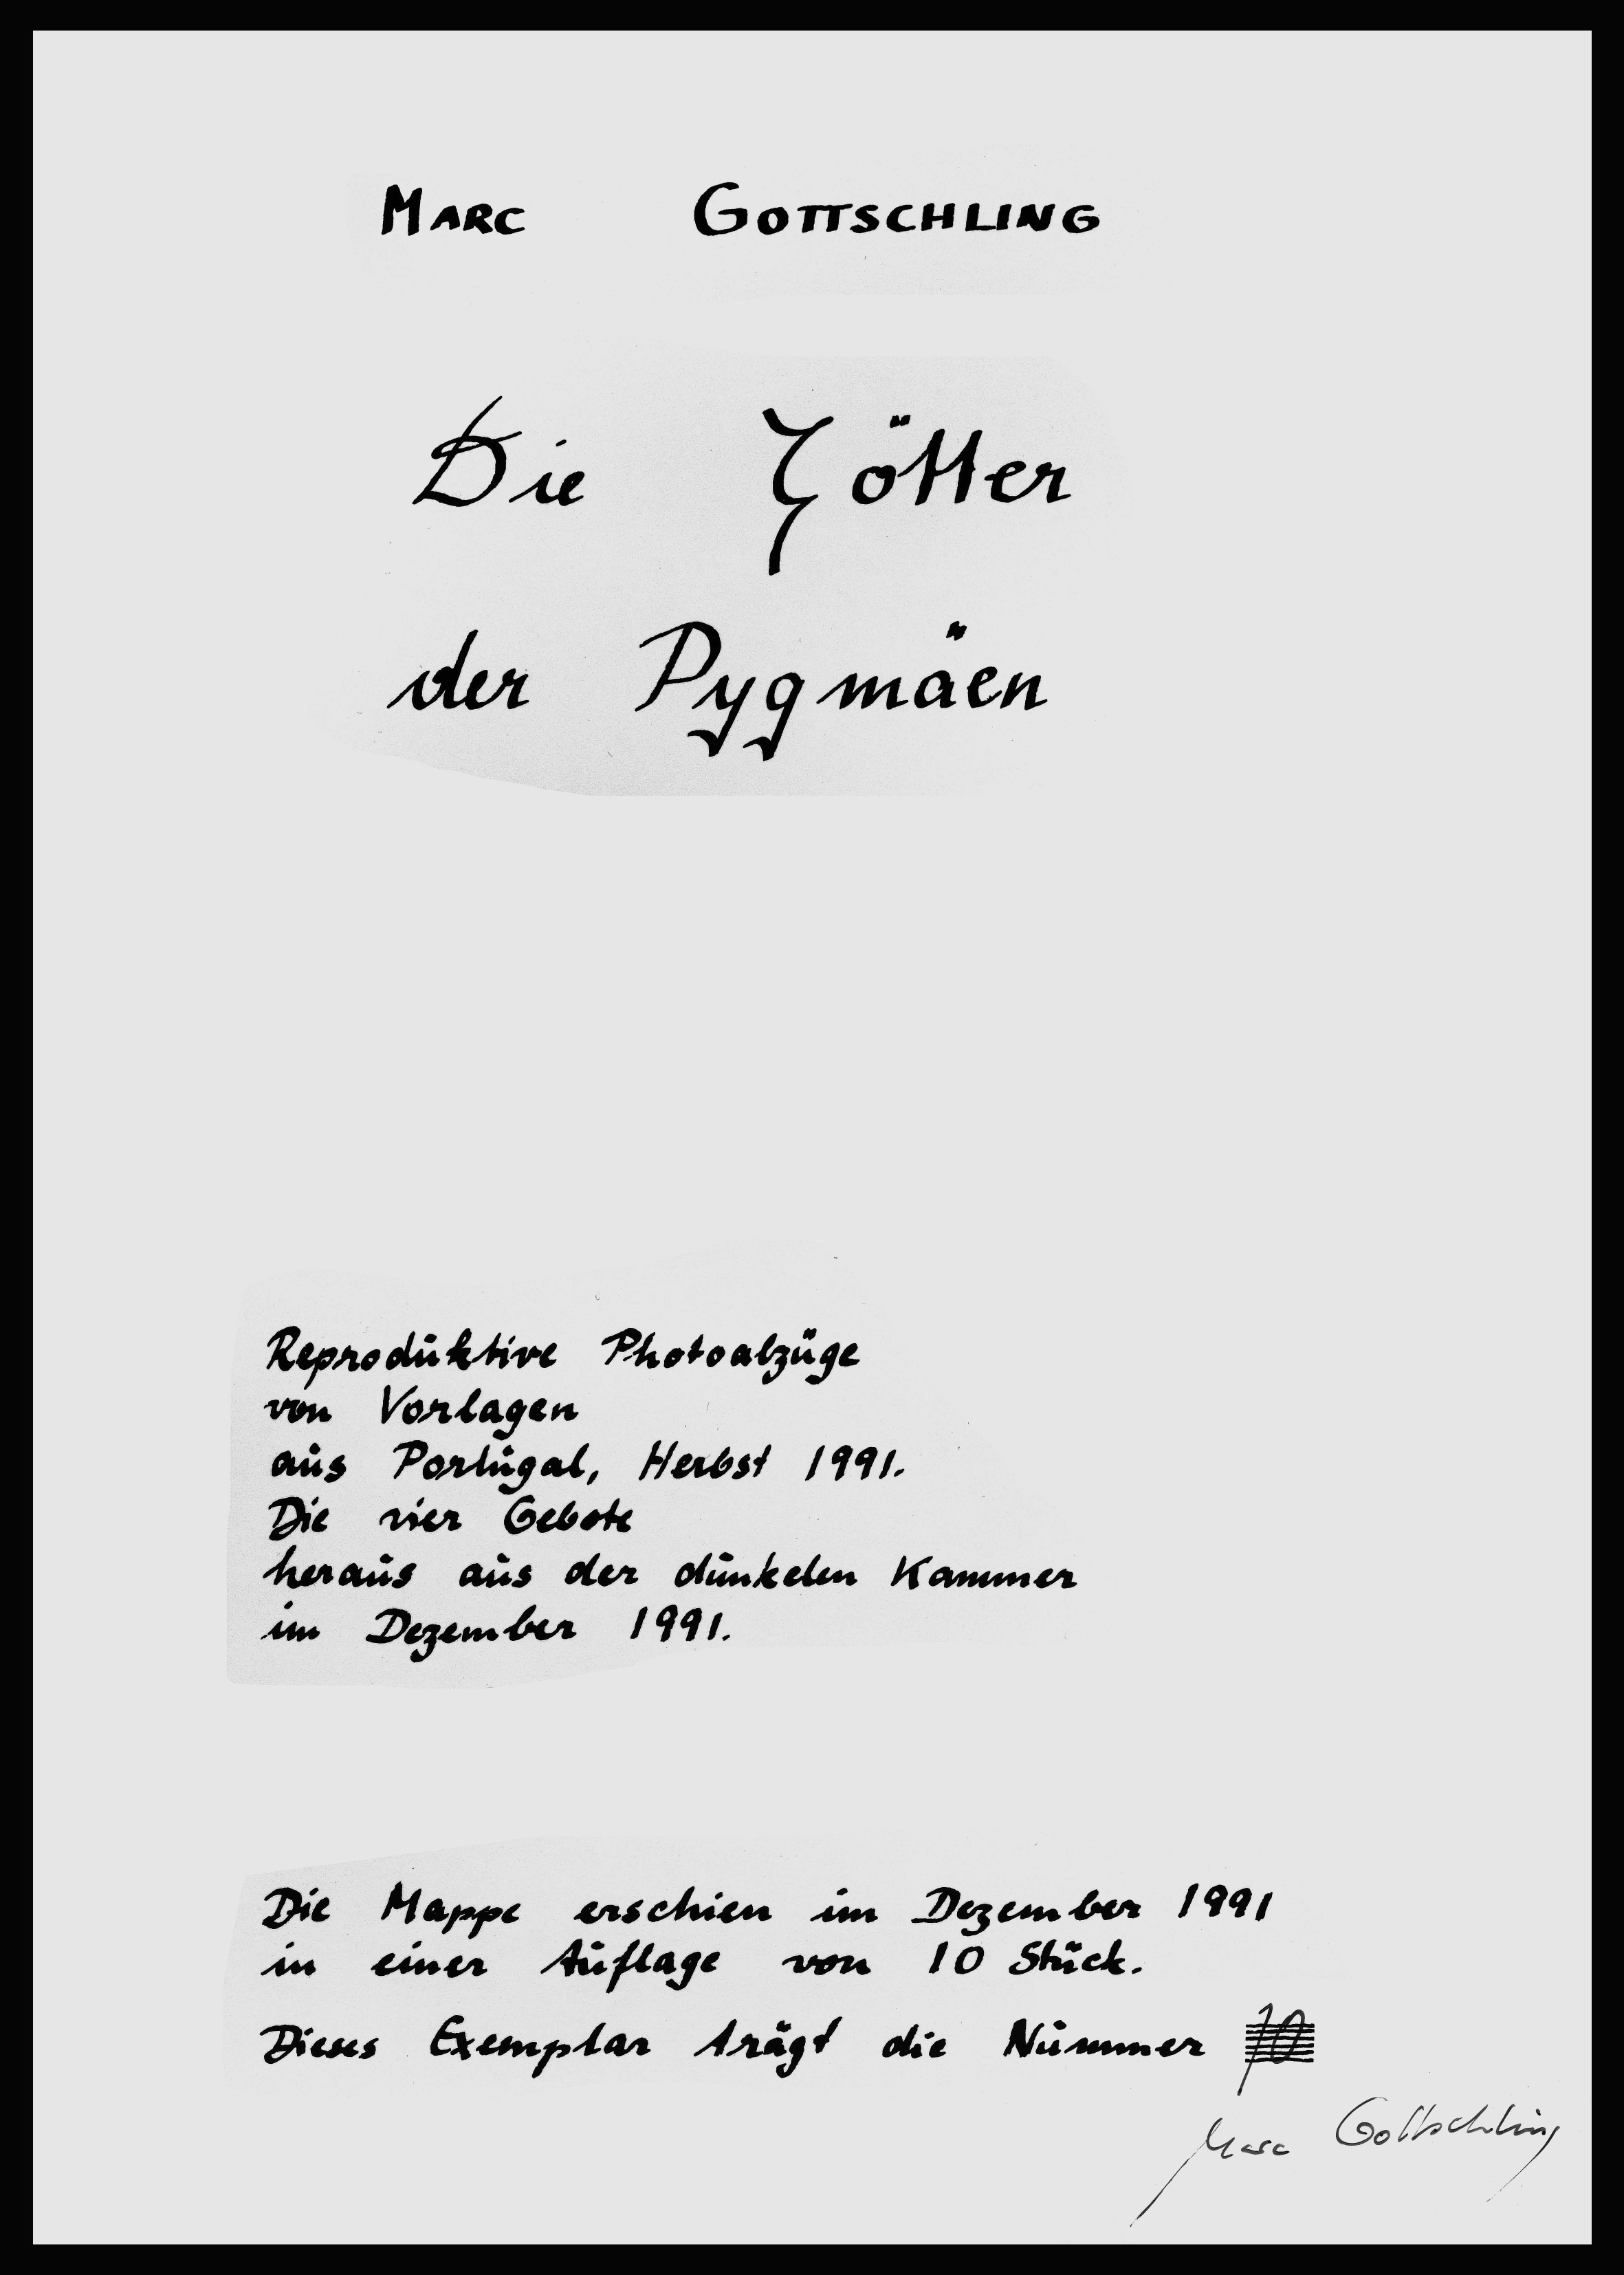 MARC GOTTSCHLING
Die Götter
der Pygmäen
Reproduktive Photoabzüge
von Vorlagen
aus Portugal, Herbst 1991.
Die vier Gebote
heraus aus der dunkelen Kammer
im Dezember 1991.
Die Mappe erschien im Dezember 1991
in einer Auflage von 10 Stück.
Dieses Exemplar trägt die Nummer 10
Marc Gottschling